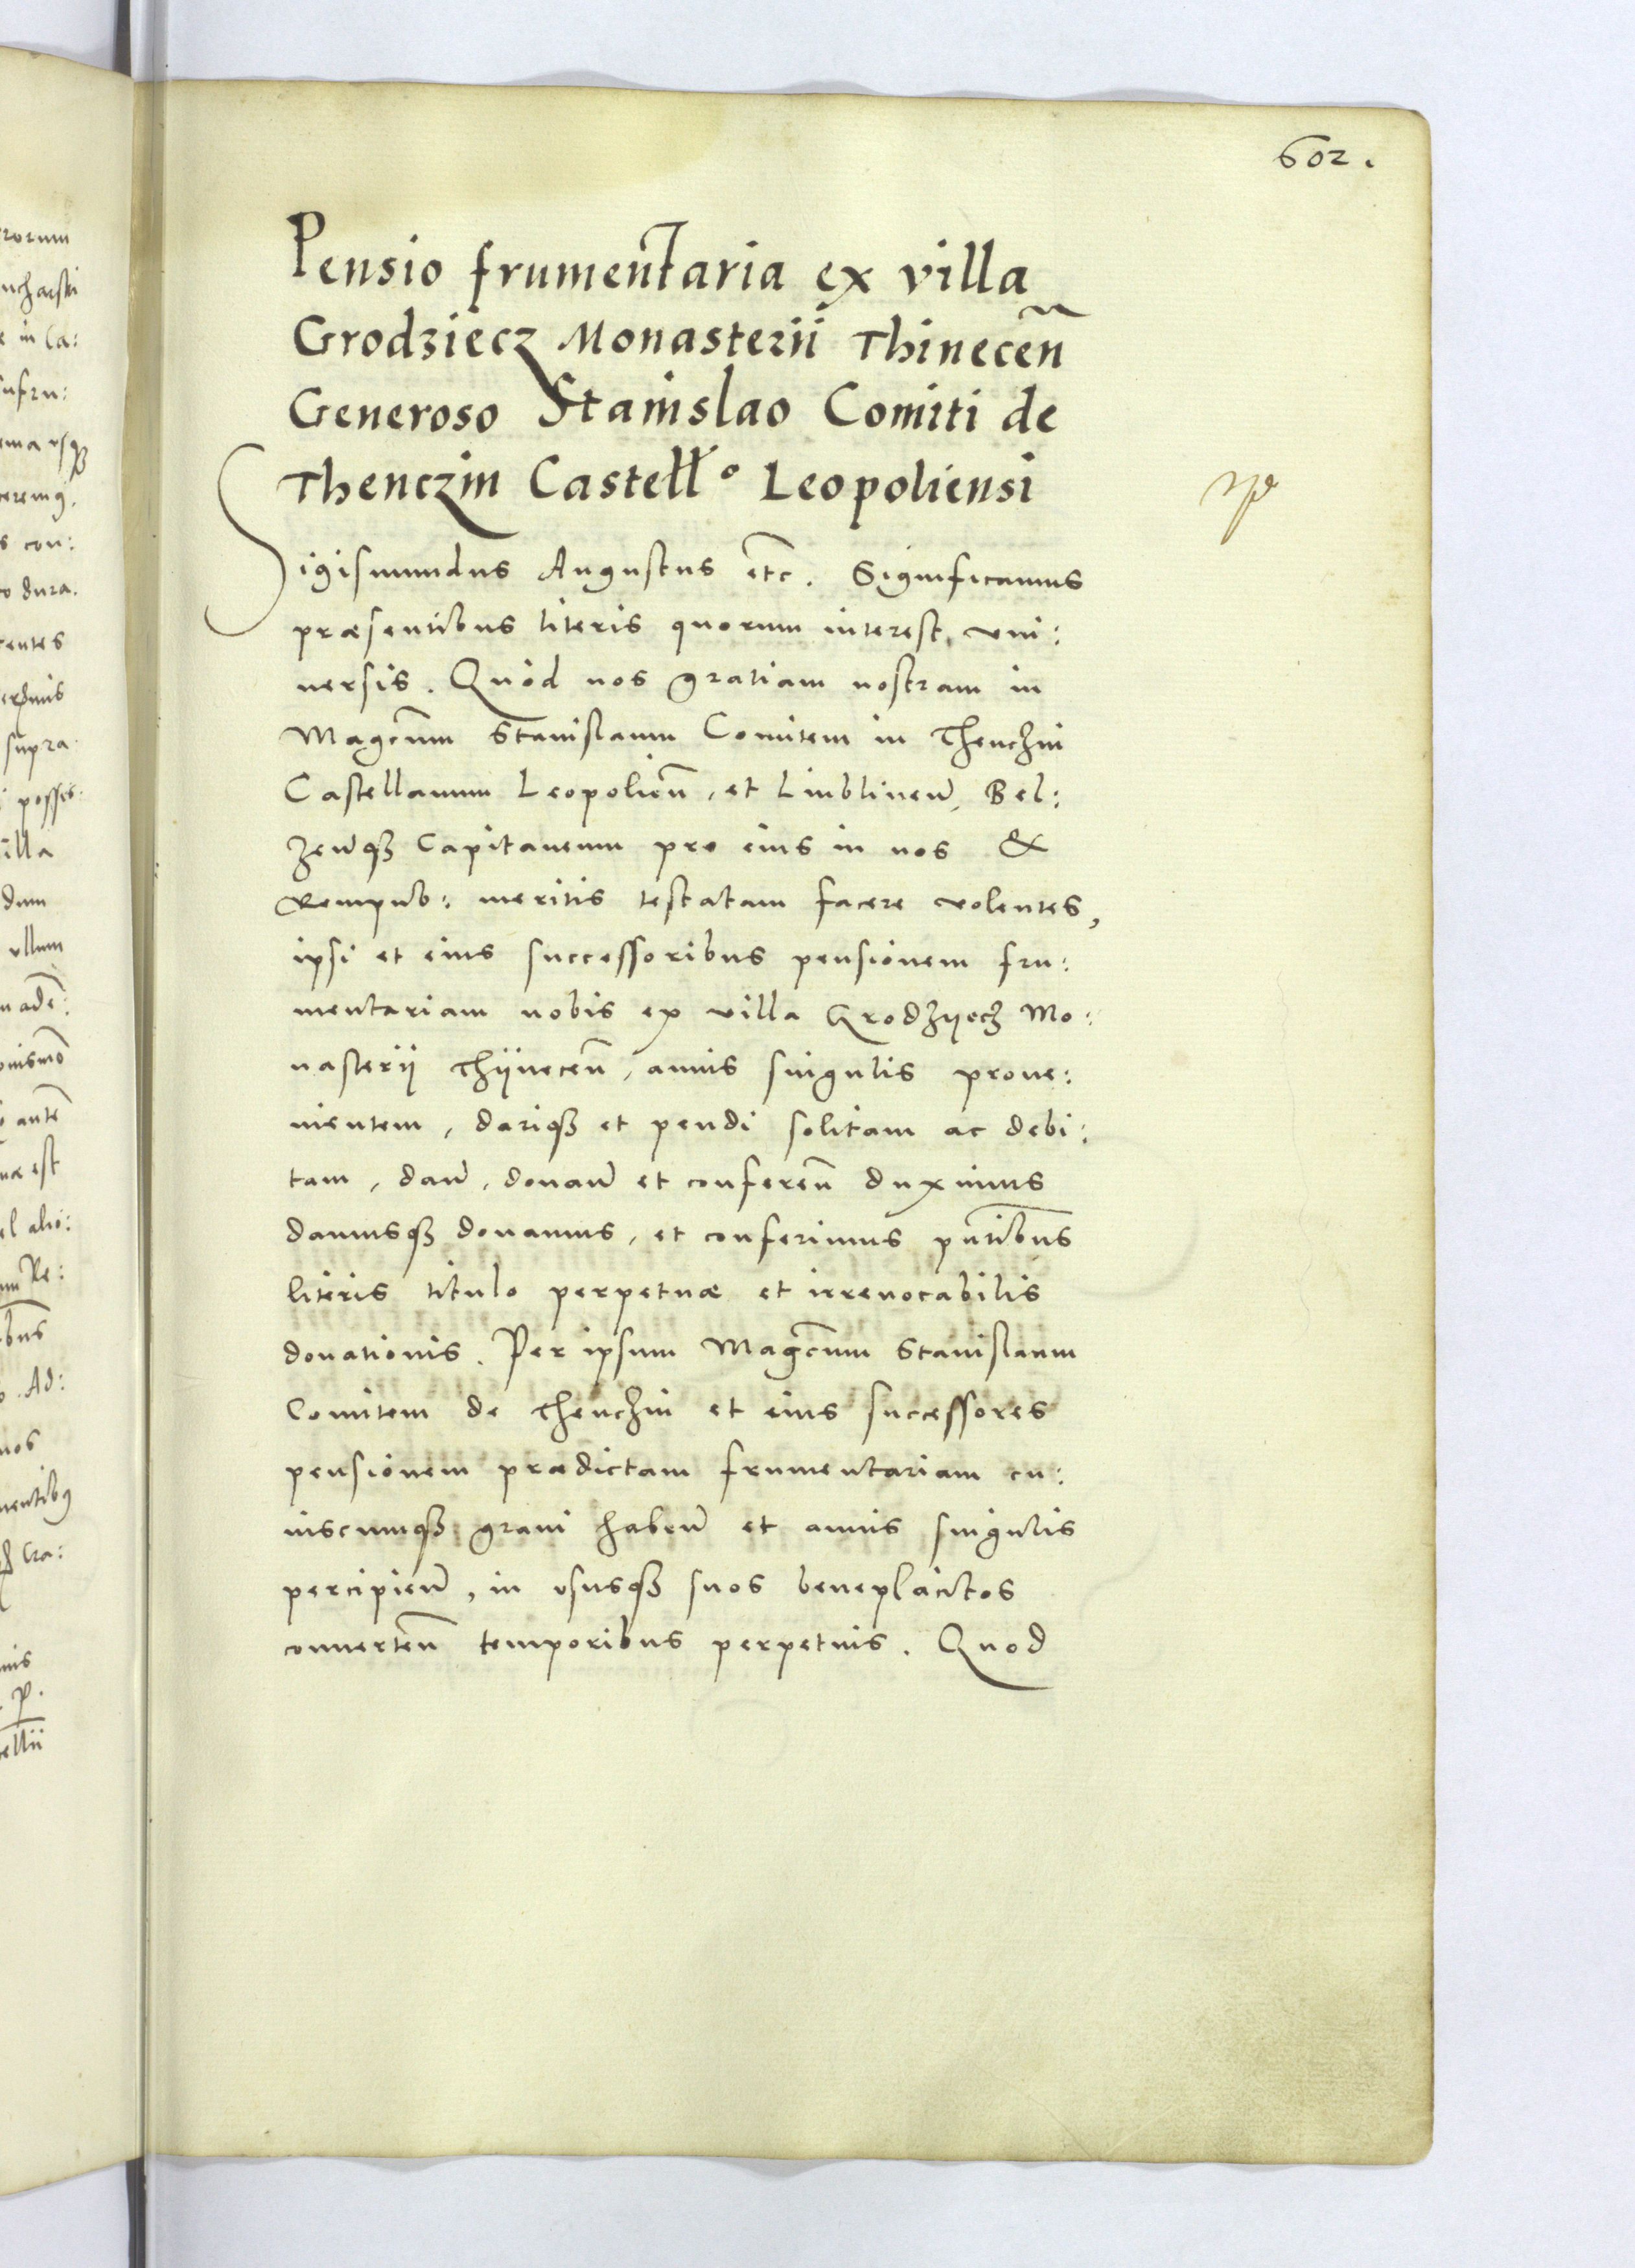 602.
Pensio frumentaria ex villa
Grodziecz Monasterii Thinecen̄
Generoso Stanislao Comiti de
Thenczin Castell° Leopoliensi
Sigismundus Augustus etc. Significamus
præsentibus literis quorum interest, vni:
uersis. Quòd nos gratiam nostram in
Magcum Stanislaum Comitem in Thenczin
Castellanum Leopolien̄, et Liublinen̄, Bel:
zen̄qꝫ Capitaneum pro eius in nos &
Rempub: meritis testatam facere volentes,
ipsi et eius successoribus pensionem fru:
mentariam nobis ex villa Grodzyecz Mo:
nasterij Thÿnecen̄, annis singulis proue:
nientem, dariqꝫ et pendi solitam ac debi:
tam, dan̄, donan̄ et conferen̄ duximus
damusqꝫ donamus, et conferimus pn̄tibus
literis titulo perpetuæ et irreuocabilis
donationis. Per ipsum Magcum Stanislaum
Comitem de Thenczin et eius successores
pensionem prædictam frumentariam cu:
iuscumqꝫ grani haben̄ et annis singulis
percipien̄, in vsusqꝫ suos beneplacitos
conuerten̄ temporibus perpetuis. Quod